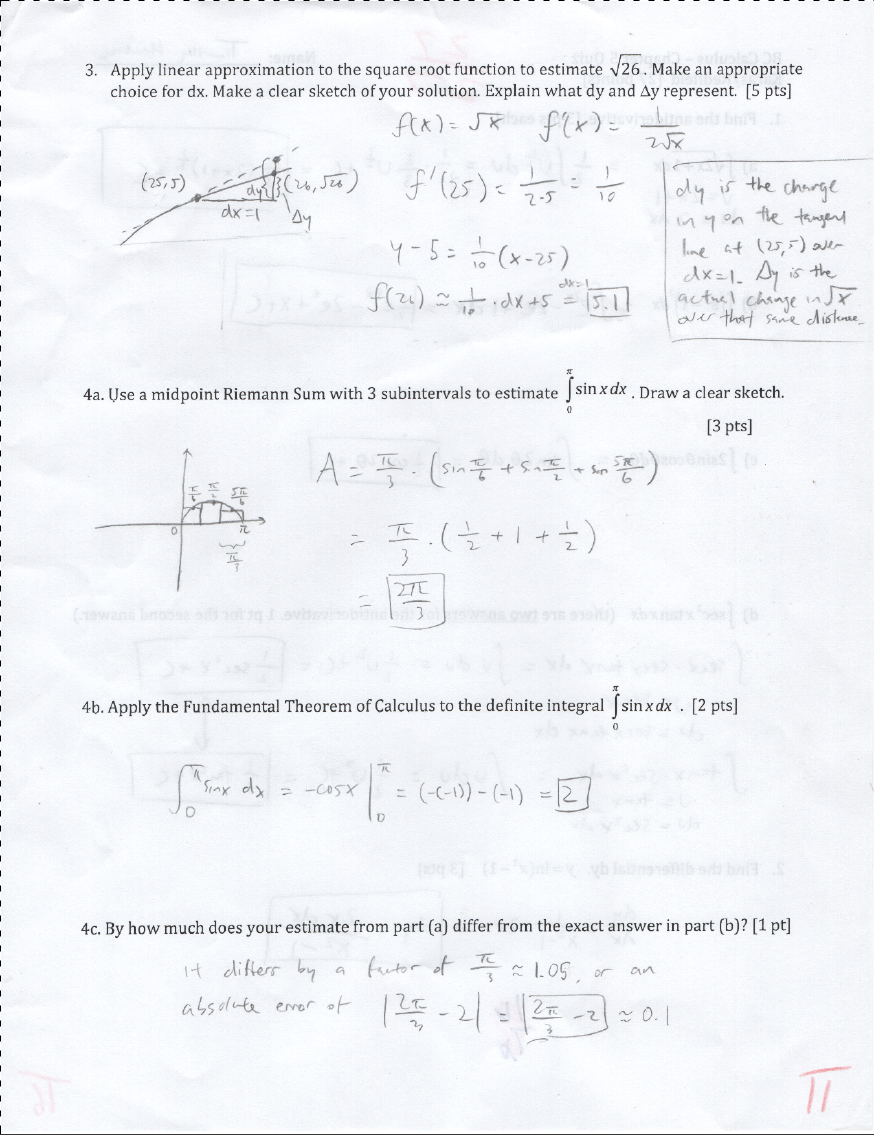 3. Apply linear approximation to the square root function to estimate √26. Make an appropriate
choice for dx. Make a clear sketch of your solution. Explain what dy and Δy represent. [5 pts]
f(x) = √x f'(x) = 1/(2√x)
(25,5) dy (26, √26)
dx=1 Δy
f'(25) = 1/(2·5) = 1/10
y - 5 = 1/10 (x-25)
f(26) ≈ 1/10 · dx + 5 dx=1 = 5.1
dy is the change
in y on the tangent
line at (25,5) over
dx=1. Δy is the
actual change in √x
over that same distance.
4a. Use a midpoint Riemann Sum with 3 subintervals to estimate ∫₀^π sin x dx . Draw a clear sketch.
[3 pts]
π/6 π/2 5π/6
0 π
π/3
A = π/3 · (sin π/6 + sin π/2 + sin 5π/6)
= π/3 · (1/2 + 1 + 1/2)
= 2π/3
4b. Apply the Fundamental Theorem of Calculus to the definite integral ∫₀^π sin x dx . [2 pts]
∫₀^π sinx dx = -cosx |₀^π = (-(-1)) - (-1) = 2
4c. By how much does your estimate from part (a) differ from the exact answer in part (b)? [1 pt]
It differs by a factor of π/3 ≈ 1.05, or an
absolute error of |2π/3 - 2| = 2π/3 - 2 ≈ 0.1
11